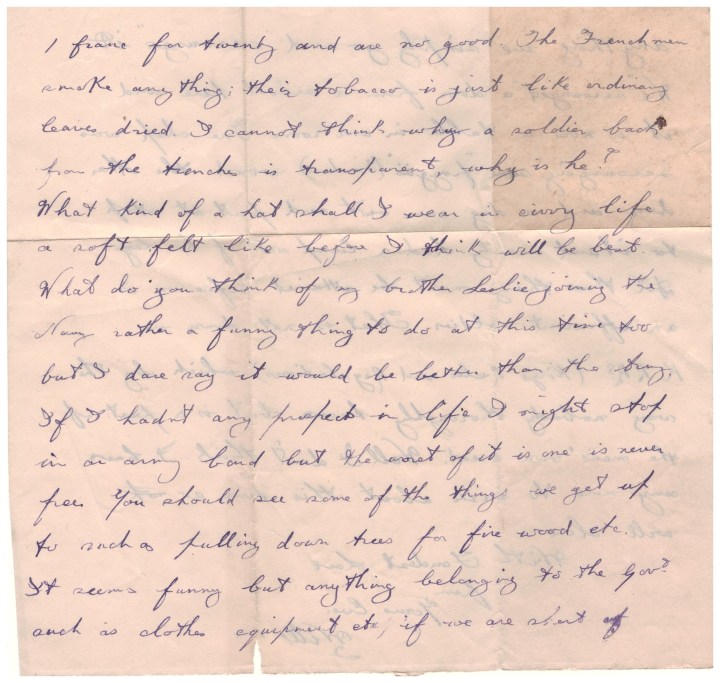 1 franc for twenty and are no good. The Frenchmen
smoke anything; their tobacco is just like ordinary
leaves dried I cannot think why a soldier back
from the trenches is transparent, why is he?
What kind of a hat shall I wear in civvy life
a soft felt like before I think will be best.
What do you think of my brother Leslie joining the
Navy rather a funny thing to do at this time too
but I dare say it would be better than the Army.
If I hadn't any prospects in life I might stop
in an army band but the worst of it is one is never
free. You should see some of the things we get up
to such as pulling down trees for fire wood etc.
It seems funny but anything belonging to the Govt
such as clothes equipment etc, if we are short of